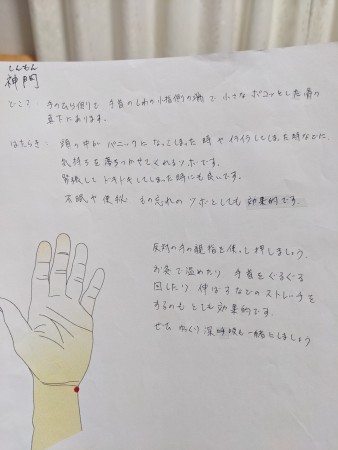 しんもん
神門
どこ? 手のひら側で 手首のしわの小指側の端で 小さなポコッとした骨の
真下にあります。
はたらき: 頭の中がパニックになってしまった時やイライラしてしまった時などに、
気持ちを落ちつかせてくれるツボです。
緊張してドキドキしてしまった時にも良いです。
不眠や便秘 もの忘れのツボとしても効果的です。
反対の手の親指を使って押しましょう。
お灸で温めたり 手首をぐるぐる
回したり 伸ばすなどのストレッチを
するのもとても効果的です。
ぜひ ゆっくり深呼吸も一緒にしましょう